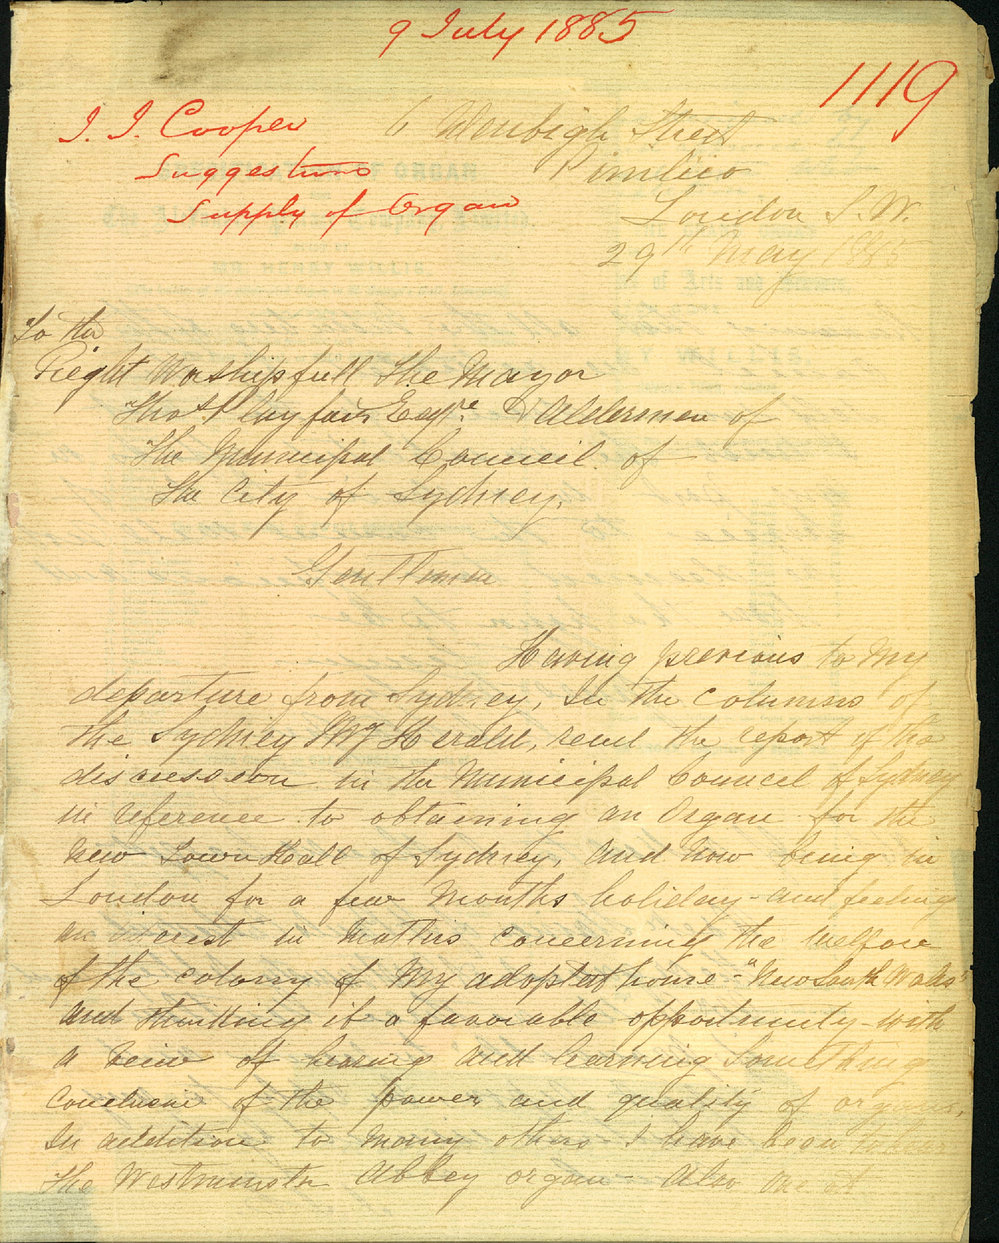 9 July 1885
1119
J. J. Cooper
Suggestions
Supply of Organ
6 Denbigh Street
Pimlico
London S.W.
29th May 1885
To the
Right Worshipfull the Mayor
Thos Playfair Esqre & Aldermen of
The Municipal Council of
The City of Sydney.
Gentlemen
Having previous to my
departure from Sydney, In the columns of
the Sydney Mg Herald, read the report of the
discussion in the Municipal Council of Sydney
in reference to obtaining an Organ for the
New Town Hall of Sydney, and now being in
London for a few Months holiday - and feeling
an interest in matters concerning the welfare
of the colony of My adopted home - "New South Wales"
And thinking it a favorable opportunity - with
a view of hearing and learning Something
Conclusive of the power and quality of organs,
In addition to many others - I have been to hear
The Westminster Abbey organ - Also one at